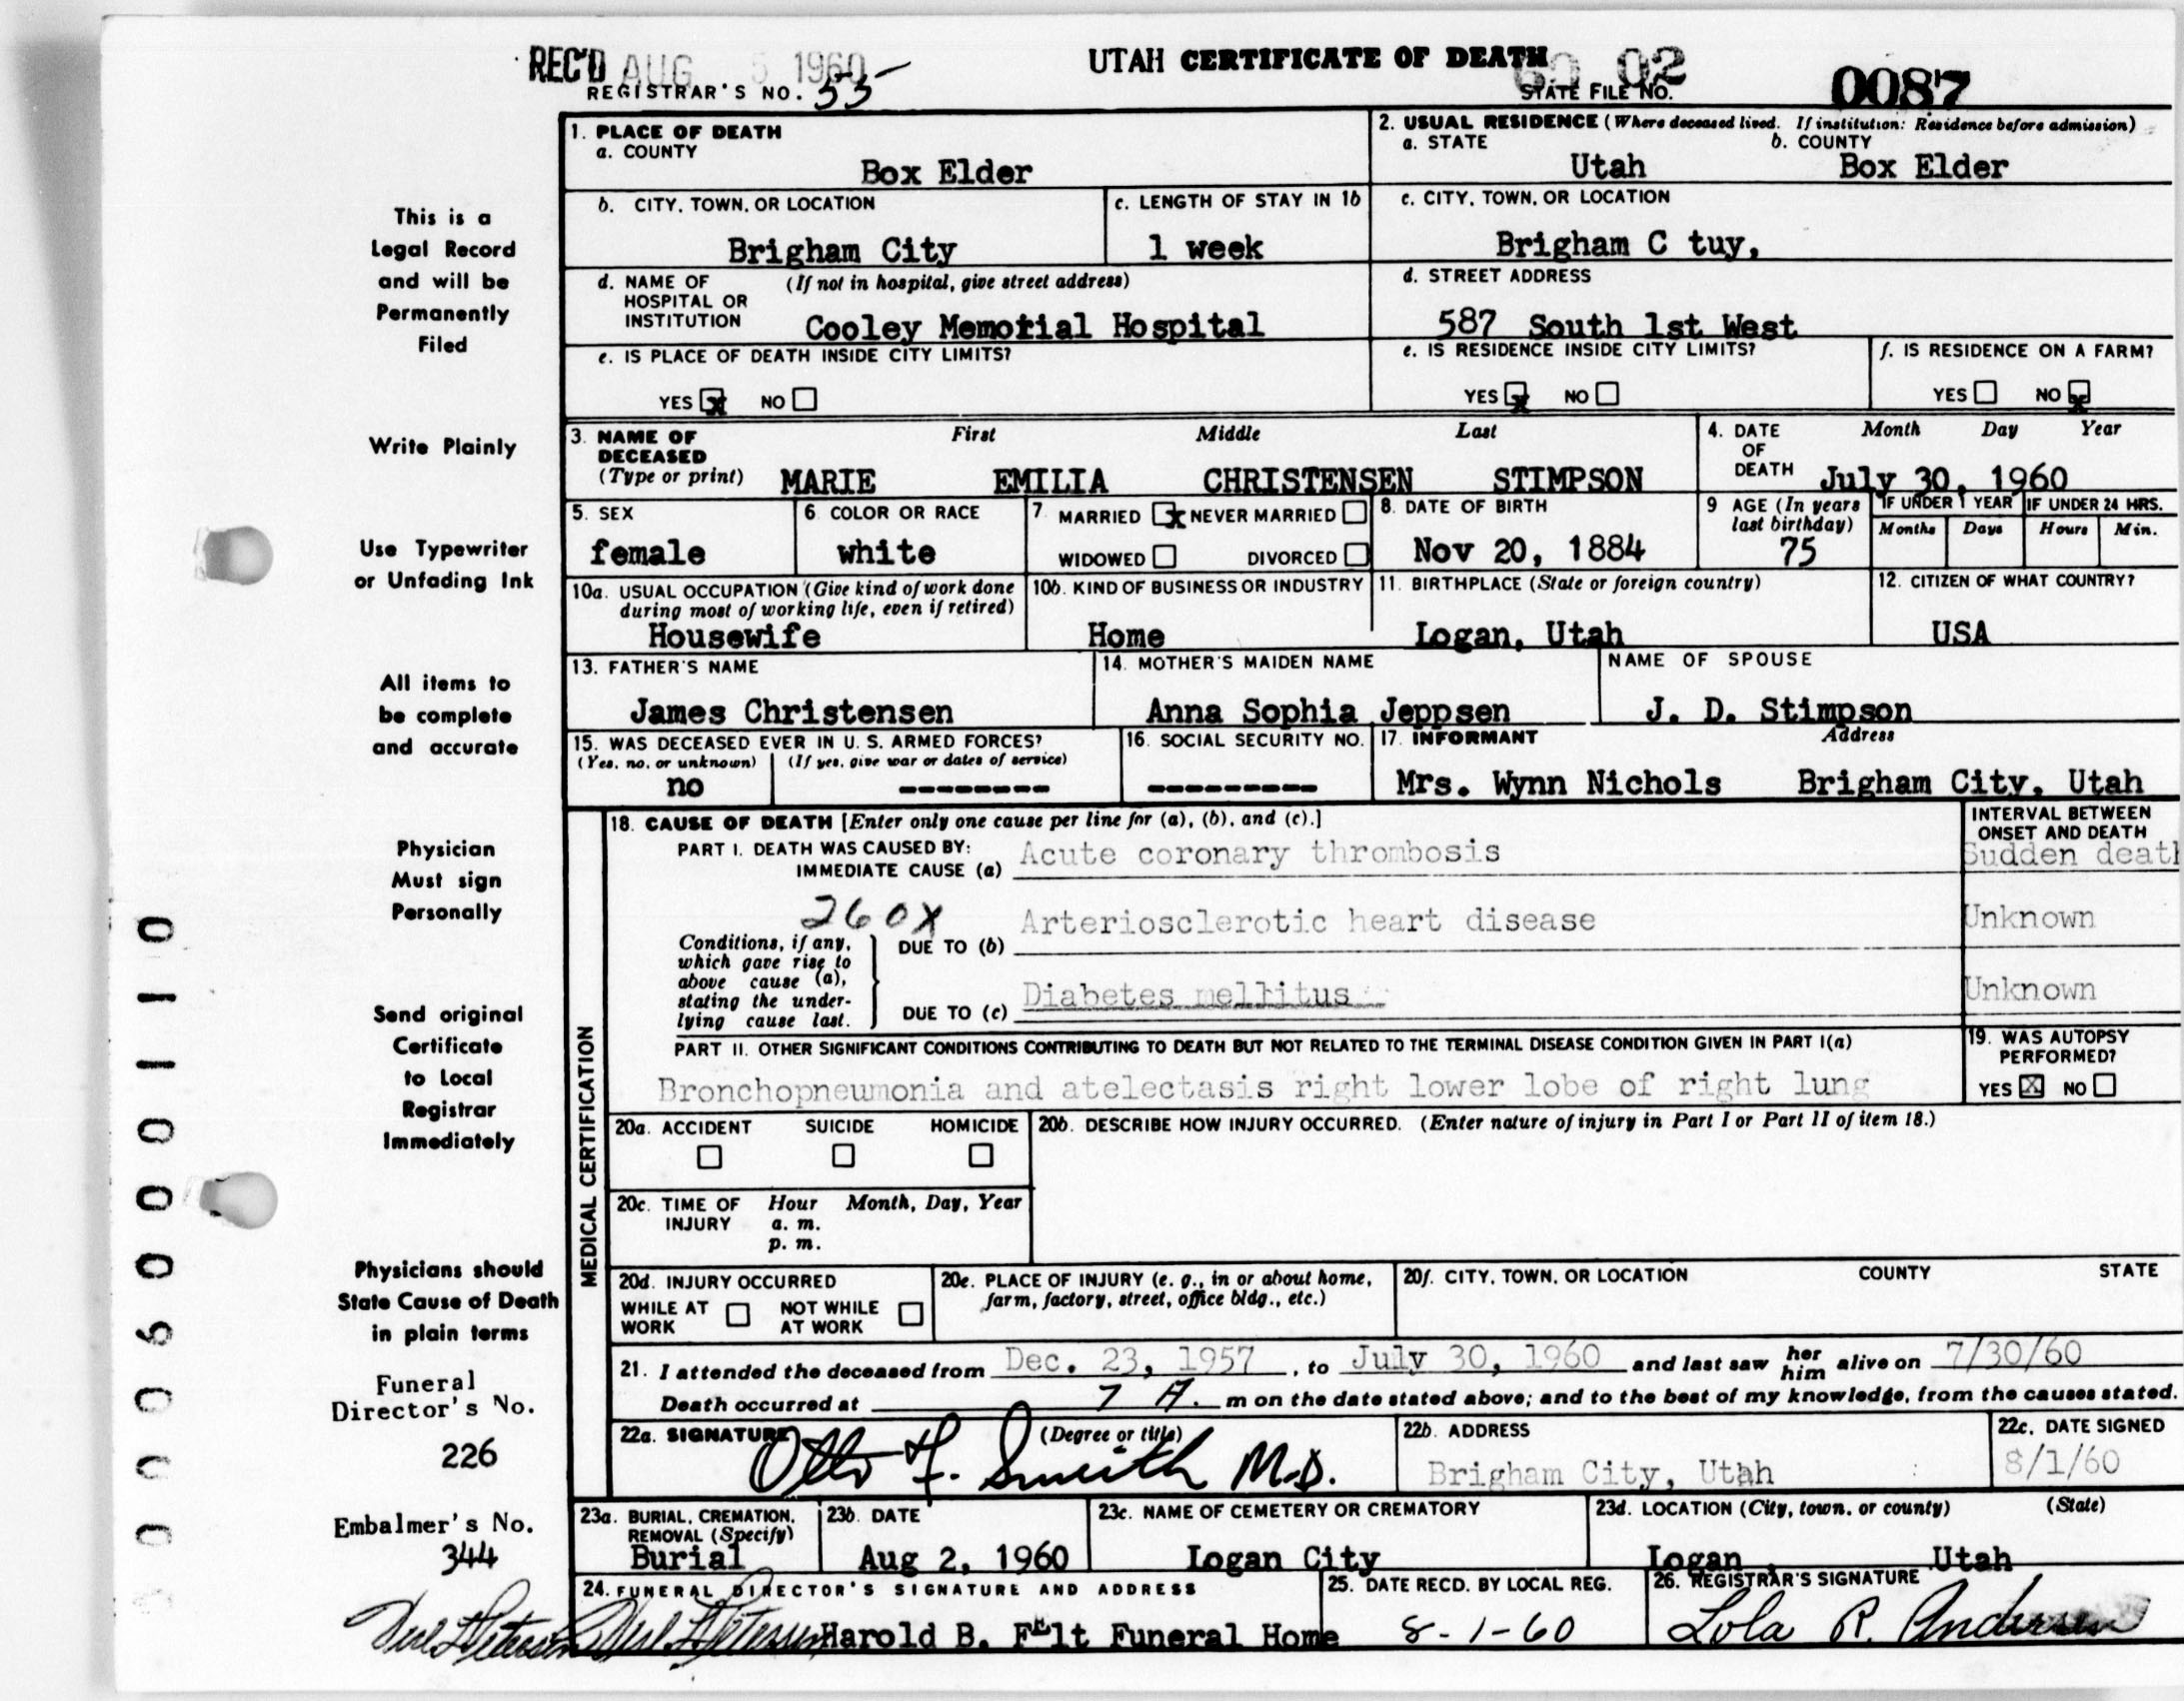 REC'D AUG 5 1960
UTAH CERTIFICATE OF DEATH 60 02
REGISTRAR'S NO. 55
STATE FILE NO. 0087
This is a
Legal Record
and will be
Permanently
Filed
Write Plainly
Use Typewriter
or Unfading Ink
All items to
be complete
and accurate
Physician
Must sign
Personally
Send original
Certificate
to Local
Registrar
Immediately
Physicians should
State Cause of Death
in plain terms
Funeral
Director's No.
226
Embalmer's No.
344
1. PLACE OF DEATH
a. COUNTY
Box Elder
2. USUAL RESIDENCE (Where deceased lived. If institution: Residence before admission)
a. STATE b. COUNTY
Utah Box Elder
b. CITY, TOWN, OR LOCATION
Brigham City
c. LENGTH OF STAY IN 1b
1 week
c. CITY, TOWN, OR LOCATION
Brigham C tuy,
d. NAME OF (If not in hospital, give street address)
HOSPITAL OR
INSTITUTION Cooley Memorial Hospital
d. STREET ADDRESS
587 South 1st West
e. IS PLACE OF DEATH INSIDE CITY LIMITS?
YES x NO
e. IS RESIDENCE INSIDE CITY LIMITS?
YES x NO
f. IS RESIDENCE ON A FARM?
YES NO x
3. NAME OF First Middle Last
DECEASED
(Type or print) MARIE EMILIA CHRISTENSEN STIMPSON
4. DATE Month Day Year
OF
DEATH July 30, 1960
5. SEX
female
6. COLOR OR RACE
white
7. MARRIED x NEVER MARRIED
WIDOWED DIVORCED
8. DATE OF BIRTH
Nov 20, 1884
9 AGE (In years
last birthday)
75
IF UNDER 1 YEAR
Months Days
IF UNDER 24 HRS.
Hours Min.
10a. USUAL OCCUPATION (Give kind of work done
during most of working life, even if retired)
Housewife
10b. KIND OF BUSINESS OR INDUSTRY
Home
11. BIRTHPLACE (State or foreign country)
Logan, Utah
12. CITIZEN OF WHAT COUNTRY?
USA
13. FATHER'S NAME
James Christensen
14. MOTHER'S MAIDEN NAME
Anna Sophia Jeppsen
NAME OF SPOUSE
J. D. Stimpson
15. WAS DECEASED EVER IN U. S. ARMED FORCES?
(Yes, no, or unknown) (If yes, give war or dates of service)
no --------
16. SOCIAL SECURITY NO.
---------
17. INFORMANT Address
Mrs. Wynn Nichols Brigham City, Utah
MEDICAL CERTIFICATION
18. CAUSE OF DEATH [Enter only one cause per line for (a), (b), and (c).]
INTERVAL BETWEEN
ONSET AND DEATH
PART I. DEATH WAS CAUSED BY:
IMMEDIATE CAUSE (a) Acute coronary thrombosis Sudden death
260X
Conditions, if any,
which gave rise to
above cause (a),
stating the under-
lying cause last.
DUE TO (b) Arteriosclerotic heart disease Unknown
DUE TO (c) Diabetes mellitus Unknown
PART II. OTHER SIGNIFICANT CONDITIONS CONTRIBUTING TO DEATH BUT NOT RELATED TO THE TERMINAL DISEASE CONDITION GIVEN IN PART I(a)
Bronchopneumonia and atelectasis right lower lobe of right lung
19. WAS AUTOPSY
PERFORMED?
YES X NO
20a. ACCIDENT SUICIDE HOMICIDE
20b. DESCRIBE HOW INJURY OCCURRED. (Enter nature of injury in Part I or Part II of item 18.)
20c. TIME OF Hour Month, Day, Year
INJURY a. m.
p. m.
20d. INJURY OCCURRED
WHILE AT NOT WHILE
WORK AT WORK
20e. PLACE OF INJURY (e. g., in or about home,
farm, factory, street, office bldg., etc.)
20f. CITY, TOWN, OR LOCATION COUNTY STATE
21. I attended the deceased from Dec. 23, 1957, to July 30, 1960 and last saw her him alive on 7/30/60
Death occurred at 7 A. m on the date stated above; and to the best of my knowledge, from the causes stated.
22a. SIGNATURE (Degree or title)
Otto F. Smith M.D.
22b. ADDRESS
Brigham City, Utah
22c. DATE SIGNED
8/1/60
23a. BURIAL, CREMATION,
REMOVAL (Specify)
Burial
23b. DATE
Aug 2, 1960
23c. NAME OF CEMETERY OR CREMATORY
Logan City
23d. LOCATION (City, town, or county) (State)
Logan, Utah
24. FUNERAL DIRECTOR'S SIGNATURE AND ADDRESS
Harold B. Felt Funeral Home
25. DATE RECD. BY LOCAL REG.
8-1-60
26. REGISTRAR'S SIGNATURE
Lola R. Andersen